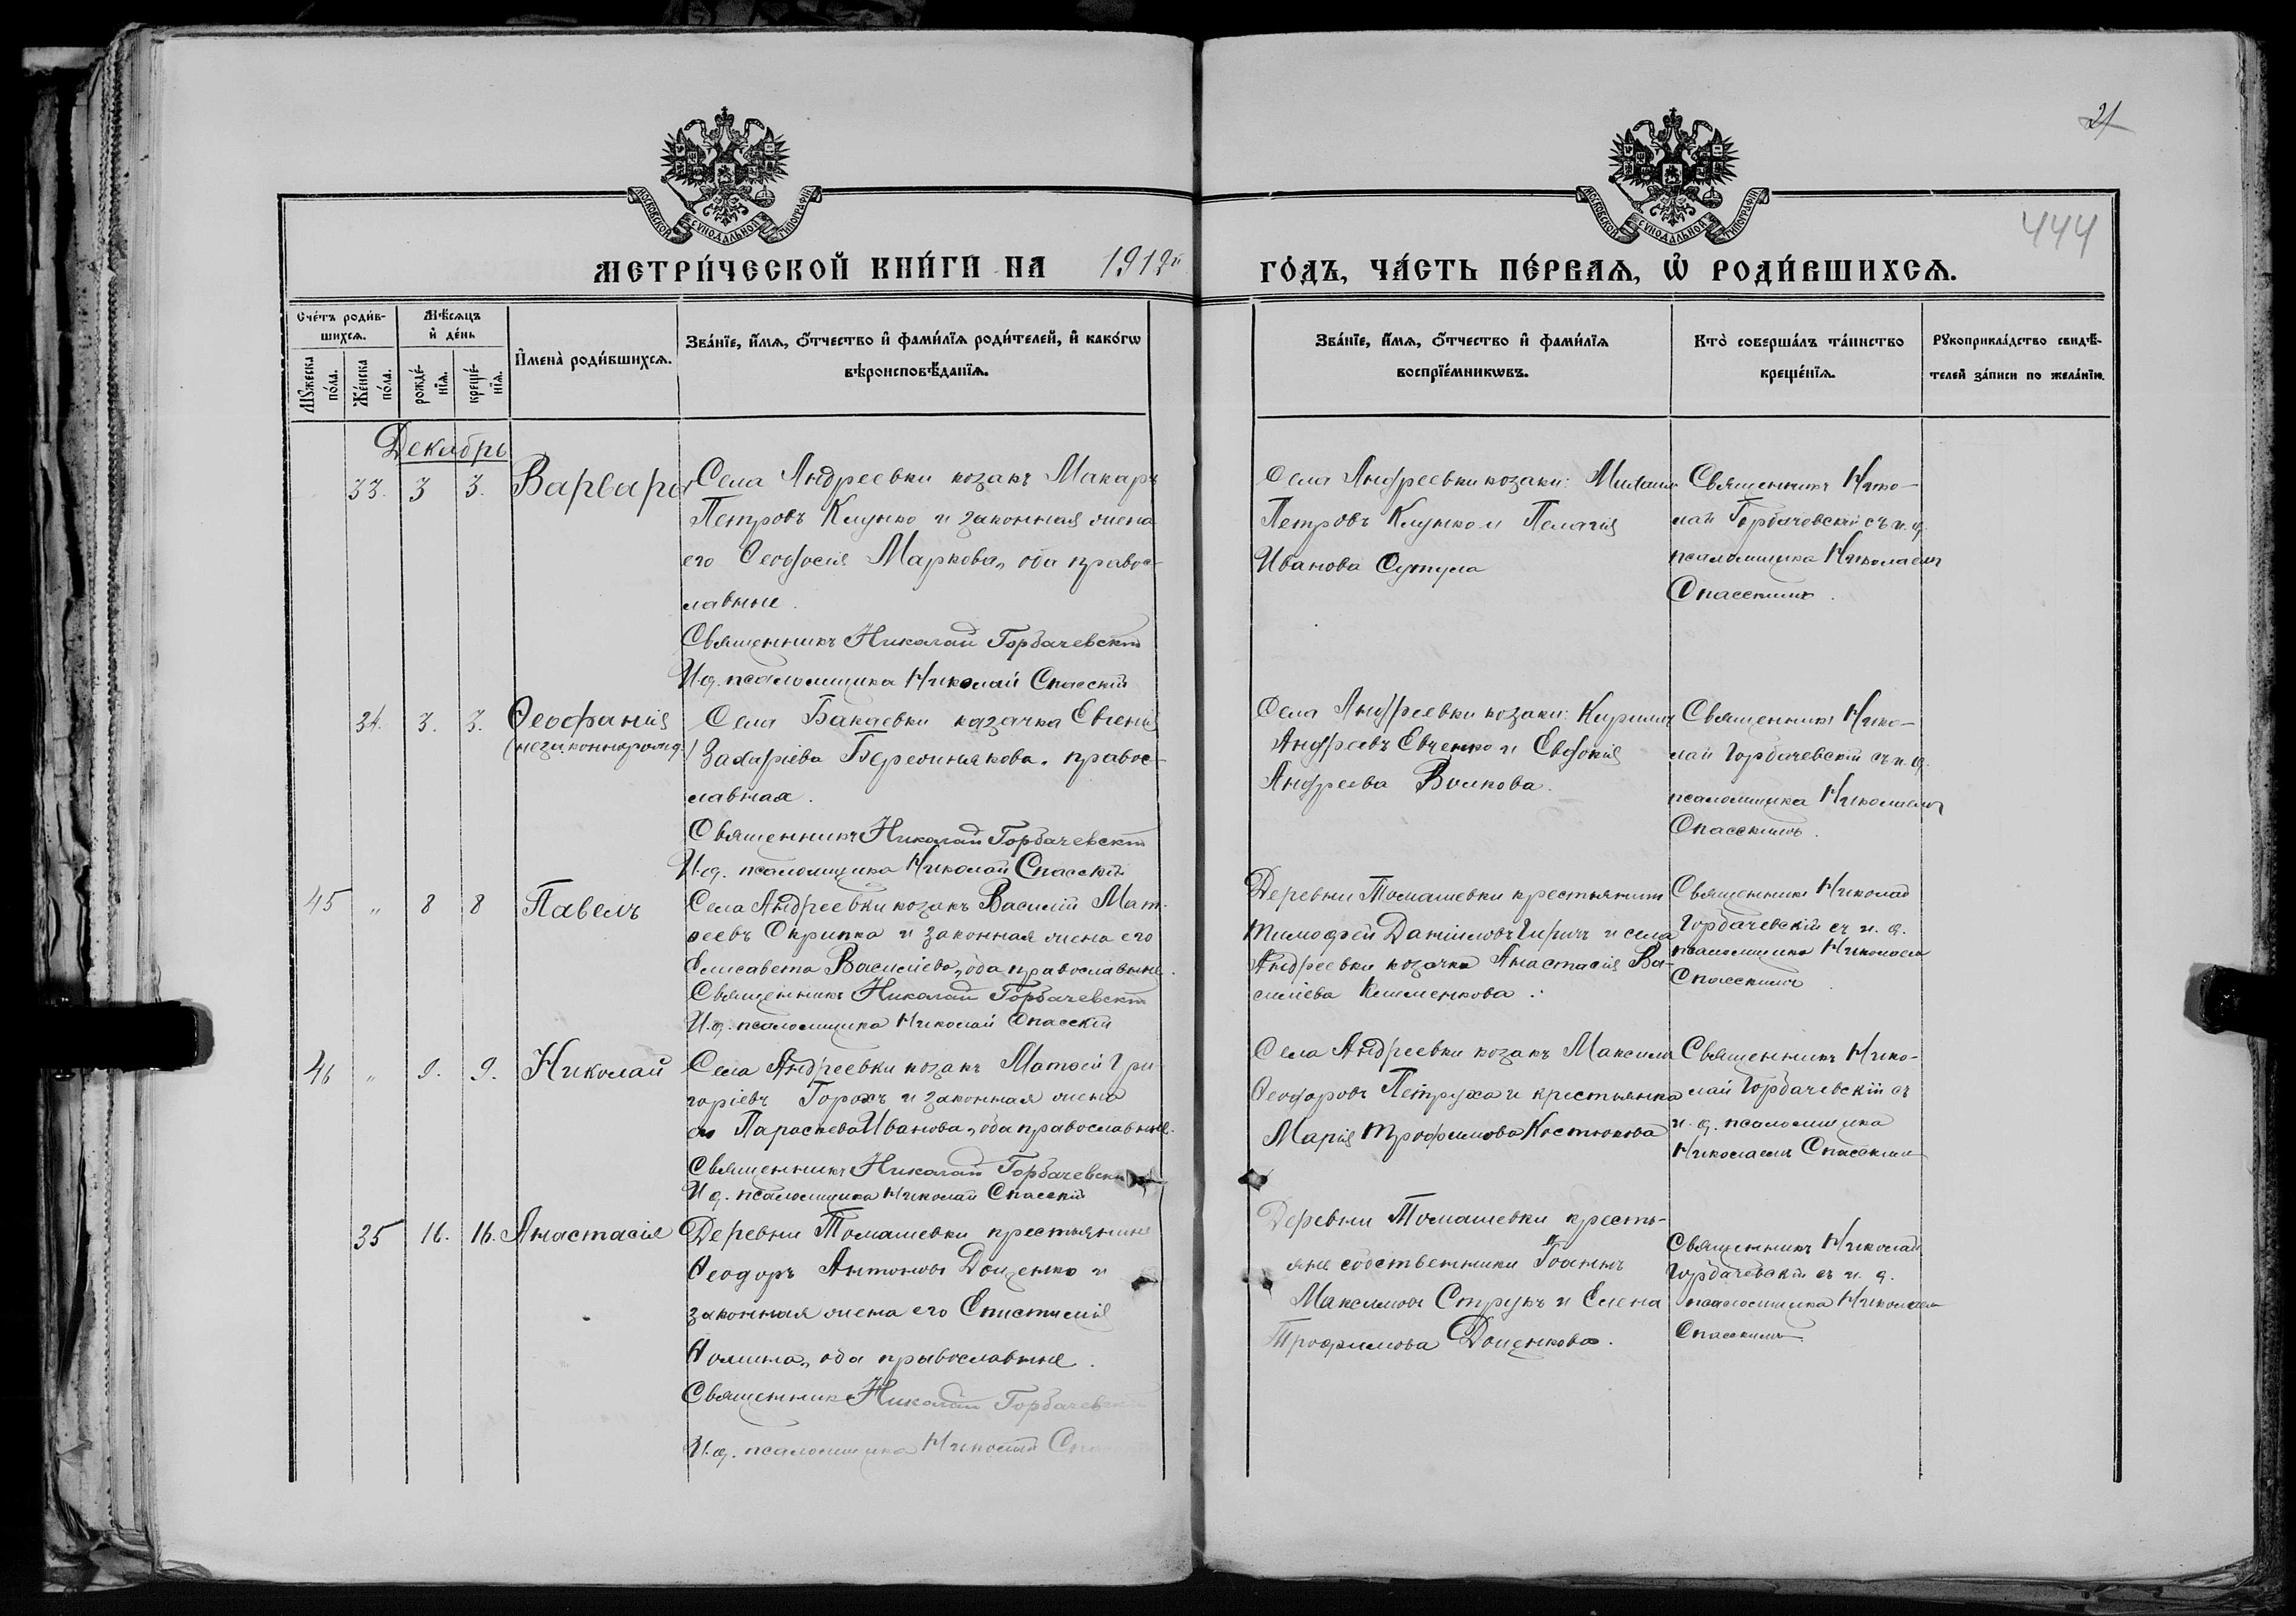 21
444
МОСКОВСКОЙ СѴНОДАЛЬНОЙ ТИПОГРАФІИ
МОСКОВСКОЙ СѴНОДАЛЬНОЙ ТИПОГРАФІИ
МЕТРИ́ЧЕСКОЙ КНИ́ГИ НА 1912й
ГО́ДЪ, ЧА́СТЬ ПЕ́РВАЯ, Ѡ҆ РОДИ́ВШИХСЯ.
Сче́тъ роди́в-
шихся.
Мꙋжеска по́ла.
Же́нска по́ла.
Мѣ́сяцъ и҆ де́нь
рожде́-нїя.
креще́-нїя.
И҆мена̀ роди́вшихся.
Зва́нїе, и҆́мя, ѻ҆́тчество и҆ фами́лїя роди́телей, и҆ како́гѡ
вѣроисповѣ́данїя.
Зва́нїе, и҆́мя, ѻ҆́тчество и҆ фами́лїя
воспрїе́мникѡвъ.
Кто̀ соверша́лъ та́инство
креще́нїя.
Рꙋкоприкла́дство свидѣ́-
телей за́писи по жела́нїю.
Декабрь
33. 3 3. Варвара
Села Андреевки козакъ Макаръ
Петровъ Клунко и законная жена
его Ѳеодосія Маркова, оба правос-
лавные.
Священникъ Николай Горбачевскій
И.д. псаломщика Николай Спасскій
Села Андреевки козаки: Михаилъ
Петровъ Клунко и Пелагія
Иванова Сутула
Священникъ Нико-
лай Горбачевскій съ и. д.
псаломщика Николаемъ
Спасскимъ.
34. 3. 3. Ѳеофанія
(незаконнорожд.)
Села Бакаевки казачка Евгенія
Захаріева Берешнякова, правос-
лавная.
Священникъ Николай Горбачевскій
И.д. псаломщика Николай Спасскій
Села Андреевки козаки: Кириллъ
Андреевъ Евченко и Евдокія
Андреева Волкова.
Священникъ Нико-
лай Горбачевскій съ и. д.
псаломщика Николаемъ
Спасскимъ.
45 " 8 8 Павелъ
Села Андреевки козакъ Василій Мат-
ѳеевъ Скрипка и законная жена его
Елисавета Василіева, оба православные.
Священникъ Николай Горбачевскій
И.д. псаломщика Николай Спасскій
Деревни Томашевки крестьянинъ
Тимофей Даніиловъ и села
Андреевки козачка Анастасія Ва-
силіева Клименкова.
Священникъ Николай
Горбачевскій съ и. д.
псаломщика Николаемъ
Спасскимъ
46 " 9. 9. Николай
Села Андреевки козакъ Матѳей Гри-
горіевъ Горохъ и законная жена
его Параскева Иванова, оба православные.
Священникъ Николай Горбачевскій
И.д. псаломщика Николай Спасскій
Села Андреевки козакъ Максимъ
Ѳеодоровъ Петруха и крестьянка
Марія Трофимова Костюкова
Священникъ Нико-
лай Горбачевскій съ
и. д. псаломщика
Николаемъ Спасскимъ
35 16. 16. Анастасія
Деревни Томашевки крестьянинъ
Ѳеодоръ Антоновъ Доценко и
законная жена его Епистимія
Ѳомина, оба православные.
Священникъ Николай Горбачевскій
И.д. псаломщика Николай
Деревни Томашевки кресть-
яне собственники Іоаннъ
Максимовъ Струкъ и Елена
Трофимова Доценкова.
Священникъ Николай
Горбачевскій съ и. д.
псаломщика Николаемъ
Спасскимъ